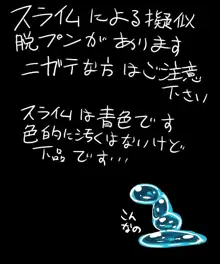 スライムによる擬似
脱プンがあります
ニガテな方はご注意
下さい
スライムは青色です
色的に汚くはないけど
下品です…
こんなの